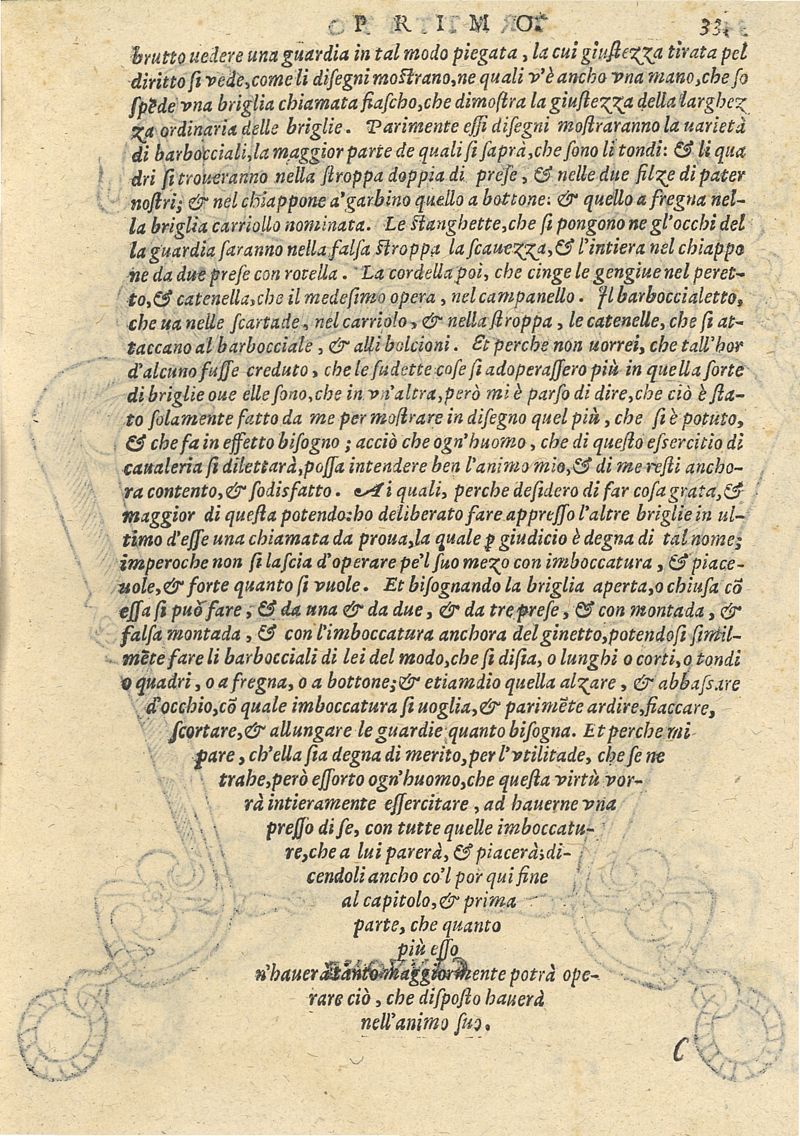 PRIMO. 33.
brutto uedere una guardia in tal modo piegata, la cui giustezza tirata pel
diritto si vede, come li disegni mostrano, ne quali v'è ancho vna mano, che so
spẽde vna briglia chiamata fiascho, che dimostra la giustezza della larghez
za ordinaria delle briglie. Parimente essi disegni mostraranno la uarietà
di barbocciali, la maggior parte de quali si saprà, che sono li tondi: & li qua
dri si troueranno nella stroppa doppia di prese, & nelle due filze di pater
nostri; & nel chiappone a'garbino quello a bottone: & quello a fregna nel-
la briglia carriollo nominata. Le stanghette, che si pongono ne gl'occhi del
la guardia saranno nella falsa stroppa la scauezza, & l'intiera nel chiappo
ne da due prese con rotella. La cordella poi, che cinge le gengiue nel peret-
to, & catenella, che il medesimo opera, nel campanello. Il barboccialetto,
che ua nelle scartade, nel carriolo, & nella stroppa, le catenelle, che si at-
taccano al barbocciale, & alli bolcioni. Et perche non uorrei, che tall'hor
d'alcuno fusse creduto, che le sudette cose si adoperassero più in quella sorte
di briglie oue elle sono, che in vn'altra, però mi è parso di dire, che ciò è sta-
to solamente fatto da me per mostrare in disegno quel più, che si è potuto,
& che fa in effetto bisogno; acciò che ogn'huomo, che di questo essercitio di
caualeria si dilettarà, possa intendere ben l'animo mio, & di me resti ancho-
ra contento, & sodisfatto. Ai quali, perche desidero di far cosa grata, &
maggior di questa potendo: ho deliberato fare appresso l'altre briglie in ul-
timo d'esse una chiamata da proua, la quale ꝑ giudicio è degna di tal nome;
imperoche non si lascia d'operare pe'l suo mezo con imboccatura, & piace-
uole, & forte quanto si vuole. Et bisognando la briglia aperta, o chiusa cõ
essa si può fare, & da una & da due, & da tre prese, & con montada, &
falsa montada, & con l'imboccatura anchora del ginetto, potendosi simil-
mẽte fare li barbocciali di lei del modo, che si disia, o lunghi o corti, o tondi
o quadri, o a fregna, o a bottone; & etiamdio quella alzare, & abbassare
d'occhio, cõ quale imboccatura si uoglia, & parimẽte ardire, fiaccare,
scortare, & allungare le guardie quanto bisogna. Et perche mi
pare, ch'ella sia degna di merito, per l'vtilitade, che se ne
trahe, però essorto ogn'huomo, che questa virtù vor-
rà intieramente essercitare, ad hauerne vna
presso di se, con tutte quelle imboccatu-
re, che a lui parerà, & piacerà; di-
cendoli ancho co'l por qui fine
al capitolo, & prima
parte, che quanto
più esso
n'hauerà tanto maggiormente potrà ope-
rare ciò, che disposto hauerà
nell'animo suo.
C